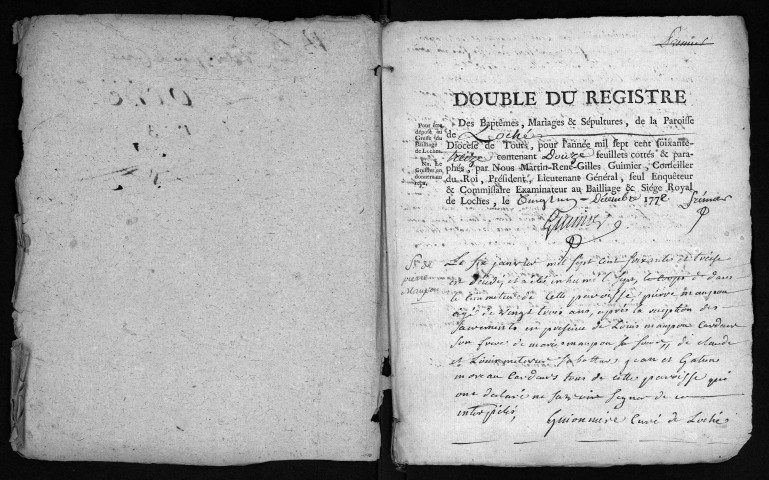 Premier
DOUBLE DU REGISTRE
Des Baptêmes, Mariages & Sépultures, de la Paroisse
de Loché
Diocèse de Tours, pour l'année mil sept cent soixante-
treize contenant Douze feuillets cottés & para-
phés, par Nous Martin-René-Gilles Guimier, Conseiller
du Roi, Président, Lieutenant Général, seul Enquêteur
& Commissaire Examinateur au Bailliage & Siége Royal
de Loches, le Decembre 1772 Premier
Pour être
déposé au
Greffe du
Bailliage
de Loches.
Le
Greffier en
donnera un
reçu.
Guimier
Sre de
pierre
Maupou
Le six janvier mil sept cent soixante et treize
est décédé et a été inhumé le corps dans
le cimetiere de cette paroisse pierre maupou
agé de vingt trois ans, après la reception des
sacrements en presence de Louis maupou cardeur
son frere de marie maupou sa soeur, de claude
et Louis jean et Gatien
moreau cardeurs tous de cette paroisse qui
ont declaré ne savoir signer de ce
interpellés
Guionnire Curé de Loché